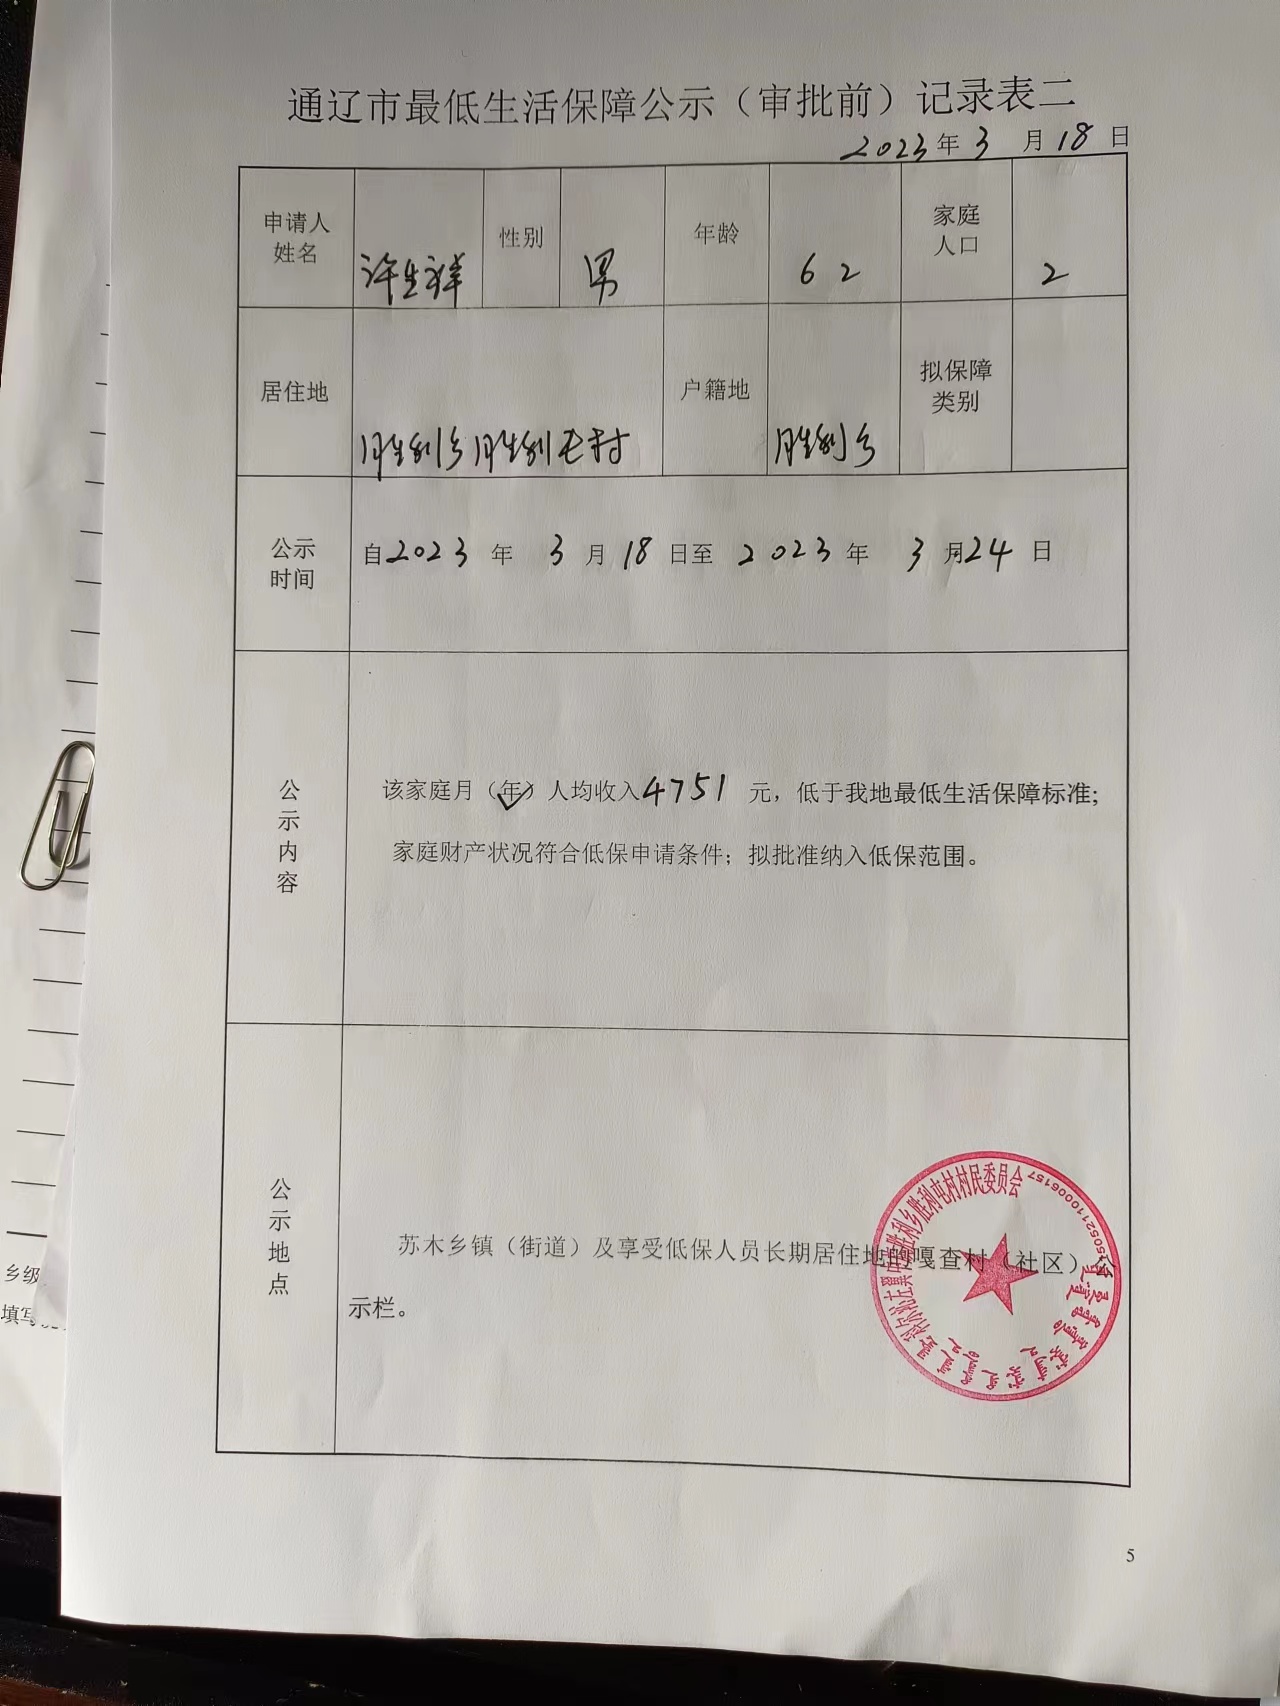 通辽市最低生活保障公示（审批前）记录表二
2023年3月18日
申请人姓名 许生祥 性别 男 年龄 62 家庭人口 2
居住地 胜利乡胜利屯村 户籍地 胜利乡 拟保障类别
公示时间 自2023年3月18日至2023年3月24日
公示内容
该家庭月（年）人均收入4751元，低于我地最低生活保障标准；
家庭财产状况符合低保申请条件；拟批准纳入低保范围。
公示地点
苏木乡镇（街道）及享受低保人员长期居住地的嘎查村（社区）公
示栏。
科尔沁左翼中旗胜利乡胜利屯村村民委员会
15052110006157
乡级
填写
5